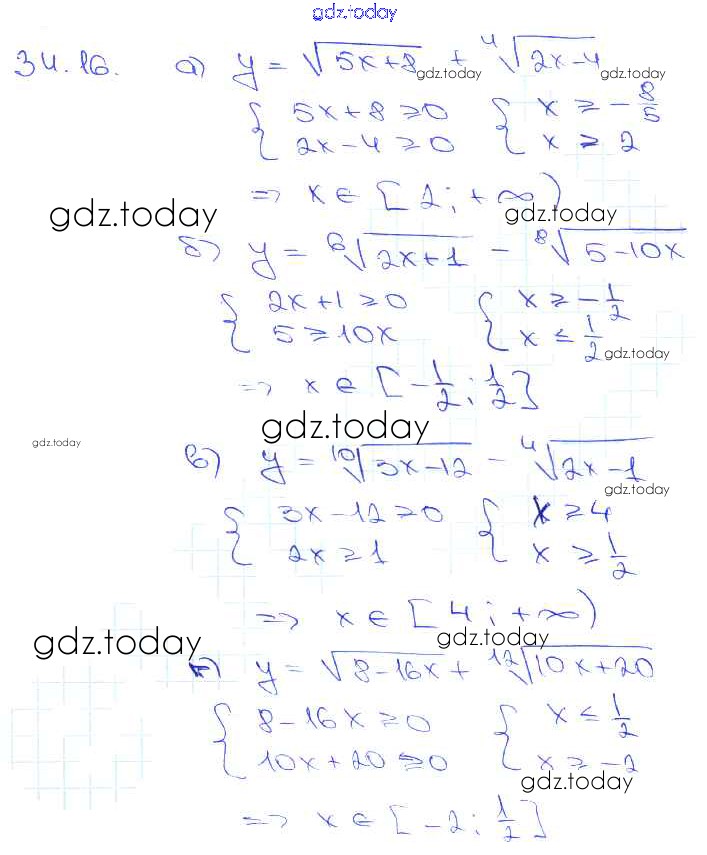 gdz.today
34.16. а) y = √(5x+8) + ⁴√(2x-4)
gdz.today gdz.today
{ 5x+8 ≥ 0 { x ≥ -8/5
{ 2x-4 ≥ 0 { x ≥ 2
=> x ∈ [2; +∞)
gdz.today gdz.today
б) y = ⁶√(2x+1) - ⁸√(5-10x)
{ 2x+1 ≥ 0 { x ≥ -1/2
{ 5 ≥ 10x { x ≤ 1/2
gdz.today
=> x ∈ [-1/2; 1/2]
gdz.today
gdz.today
в) y = ¹⁰√(3x-12) - ⁴√(2x-1)
gdz.today
{ 3x-12 ≥ 0 { x ≥ 4
{ 2x ≥ 1 { x ≥ 1/2
=> x ∈ [4; +∞)
gdz.today gdz.today
г) y = √(8-16x) + ¹²√(10x+20)
{ 8-16x ≥ 0 { x ≤ 1/2
{ 10x+20 ≥ 0 { x ≥ -2
gdz.today
=> x ∈ [-2; 1/2]